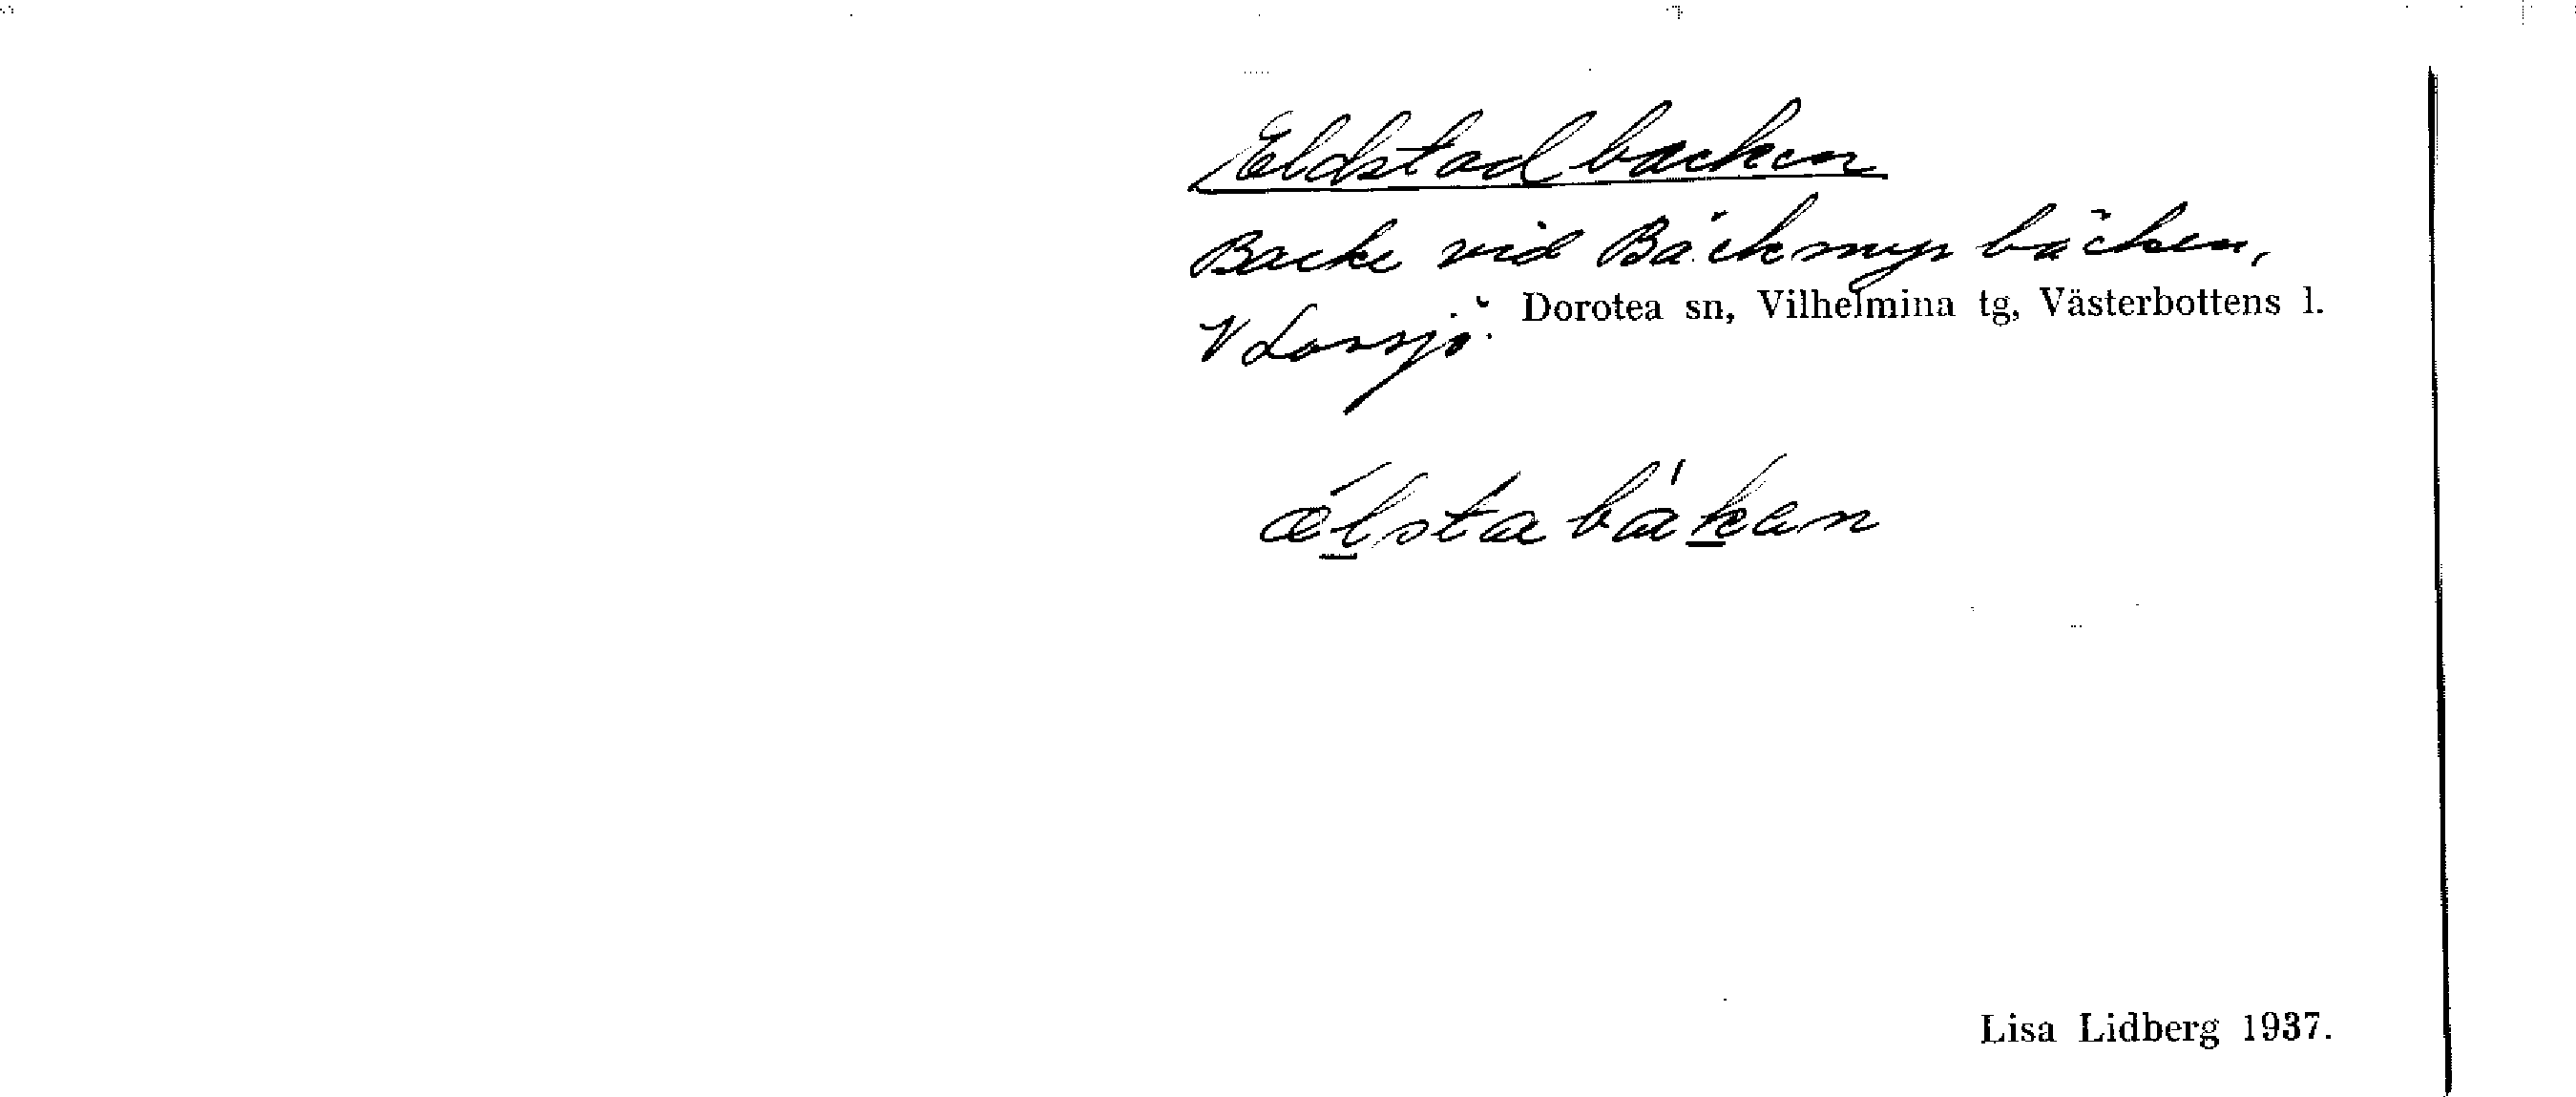 Eldstadbacken
Backe vid Bäckmyrbäcken,
V Lavsjö. Dorotea sn, Vilhelmina tg, Västerbottens l.
Lisa Lidberg 1937.